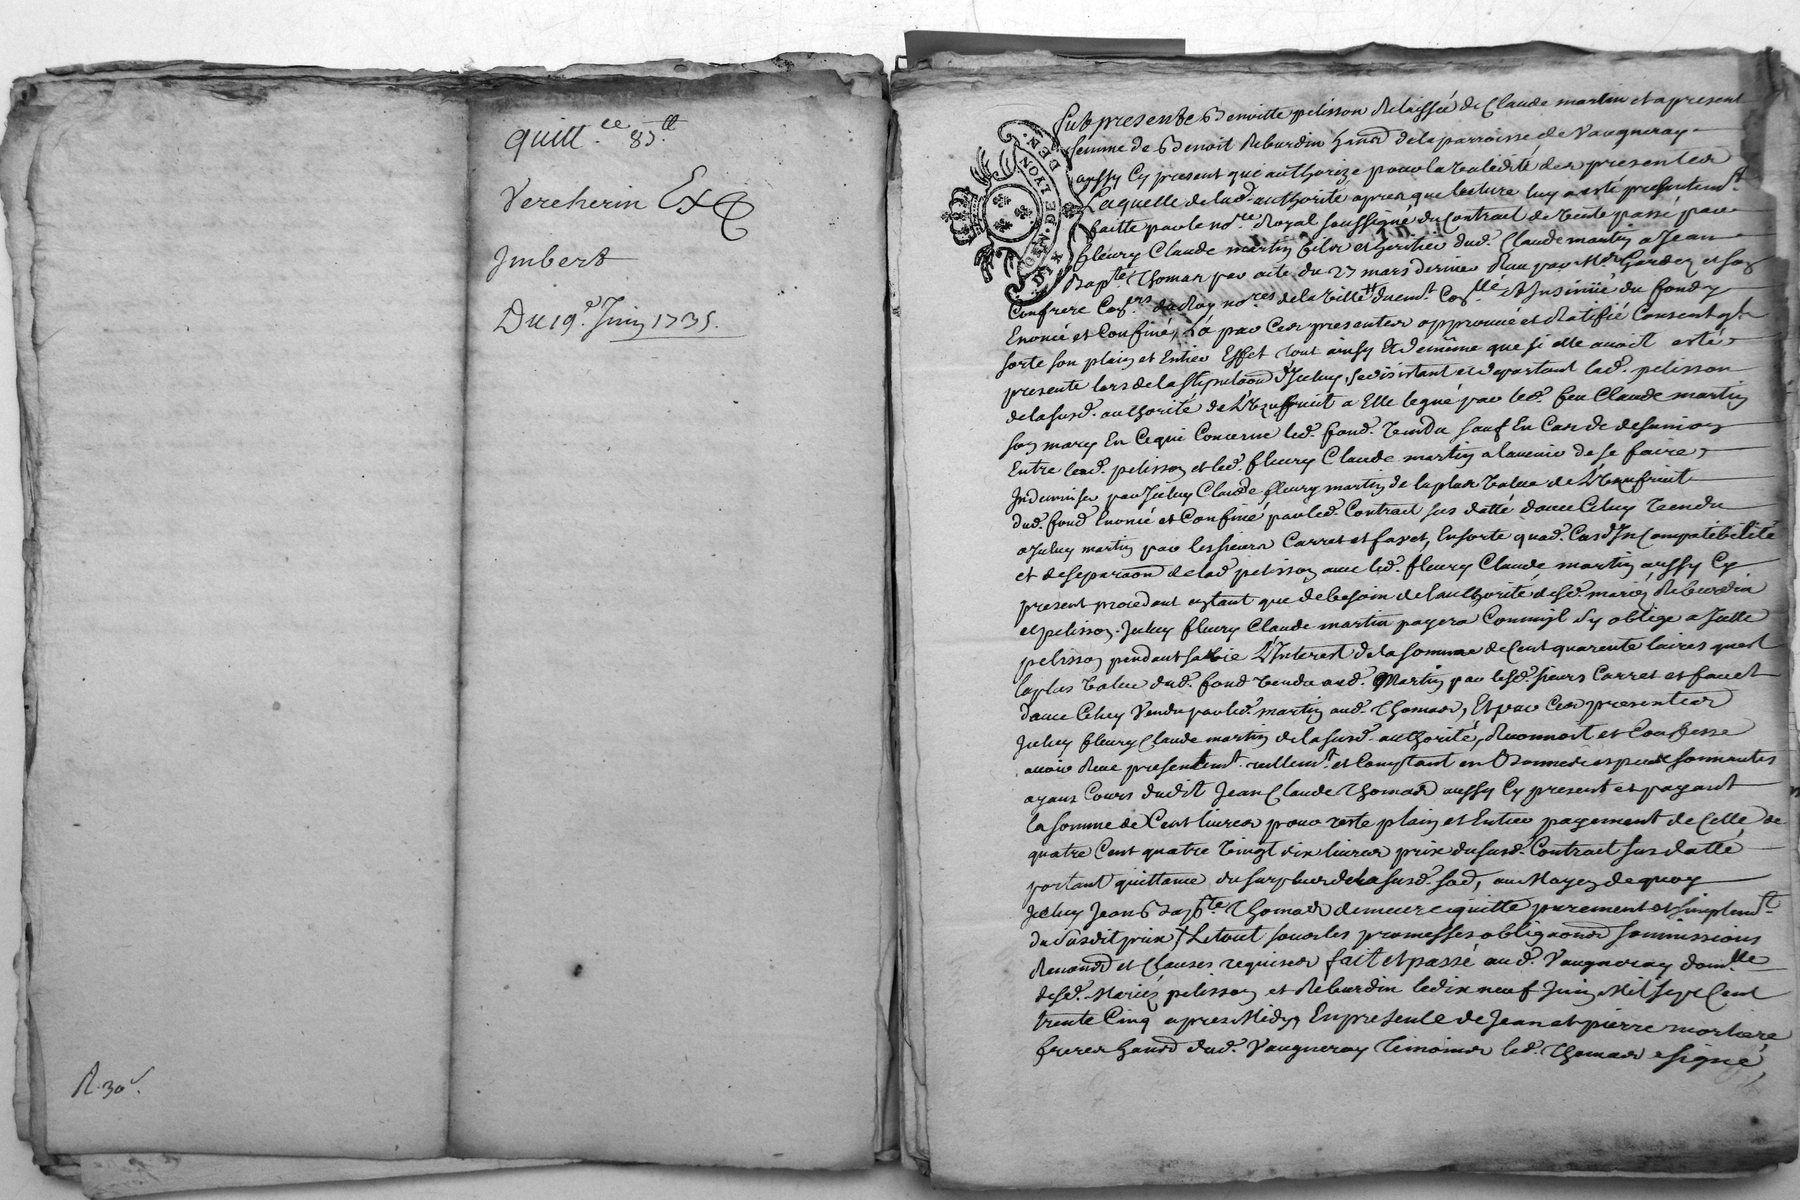 quitt.ce 85.tt
Vercherin Ex
Jmbert
Du 19.e Juin 1735.
R. 30s.
GEN. DE LYON
DIX DEN.
Fut presente Benoitte pelisson Relaissée de Claude martin et apresent
femme de Benoit Reburdin habd de la parroisse de Vaugneray
aussy Cy present qui authorize pour la validité des presentes
Laquelle de lad. authorité apres que lecture luy a esté presentemt
faitte par le nore Royal soussigné du Contract de vente passé par
fleury Claude martin fils et heritier dud. Claude martin a Jean
Bapte Thomas par acte du 27 mars dernier Receu par Me Gardez et son
Confrere Coners du Roy nores de la ville duemt Conllé et Insinüé du fondz
Enoncé et Confiné, La par Ces presentes approuvé et Ratifié Consent qu'il
sorte son plain et Entier Effet tout ainsy Et de même que si elle avoit esté
presente lors de la stipulaon d'Jceluy, se desistant et departant lad. pelisson
de la susd. authorité de L'Uzufruit a Elle legué par led. feu Claude martin
son mary En Ce qui Concerne led. fond. vendu sauf En Cas de desunion
Entre lad. pelisson et led. fleury Claude martin a lavenir de se faire
Indemniser par Jceluy Claude fleury martin de la plus value de L'Uzufruit
dud. fond Enoncé et Confiné par led. Contract sus datté davec Celuy vendu
a Jceluy martin par les sieurs Carret et favet, Ensorte quad. Cas d'InCompatibilité
et de separaon de lad. pelisson avec led. fleury Claude martin aussy Cy
present procedant entant que de besoin de l'authorité desd. mariés Reburdin
et pelisson. Jceluy fleury Claude martin payera Comme il s'y oblige a Jcelle
pelisson pendant sa vie L'Interest de la somme de Cent quarente livres quest
la plus value dud. fond vendu aud. Martin par lesd. sieurs Carret et favet
davec Celuy Vendu par led. martin aud. Thomas, Et par Ces presentes
Jceluy fleury Claude martin de la susd. authorité, Reconnoit et Confesse
avoir Receu presentemt. reellemt. et Comptant en Bonnes especes sonnantes
ayans Cours dudit Jean Claude Thomas aussy Cy present et payant
la somme de Cent livres pour reste plain et Entier payement de Celle de
quatre Cent quatre vingt dix livres prix du susd. Contract sus datté
portant quittance du surplus de la susd. so.e, au Moyen de quoy
Jceluy Jean Bapte Thomas demeure quitte purement et simplemt
du susdit prix + Le tout sous les promesses obligaons soumissions
Renons et Clauses requises fait et passé aud. Vaugneray domlle
desd. Mariés pelisson et Reburdin le dix neuf Juin Mil sept Cent
trente Cinq apres Midy, En presence de Jean et pierre mortiere
freres habd dud. Vaugneray temoins led. Thomas a signé,